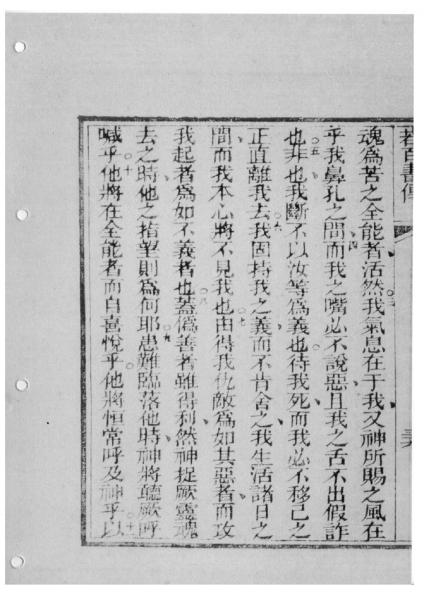 若百書傳
魂為苦之全能者活然我氣息在于我又神所賜之風在
乎我鼻孔之間而我之嘴必不說惡且我之舌不出假詐
也非也我斷不以汝等為義也待我死而我必不移己之
正直離我去我固持我之義而不肯舍之我生活諸日之
間而我本心將不見我也由得我仇敵為如其惡者而攻
我起者為如不義者也蓋偽善者雖得利然神捉厥靈魂
去之時他之指望則為何耶患難臨落他時神將聽厥呼
喊乎他將在全能者而自喜悅乎他將恒常呼及神乎以